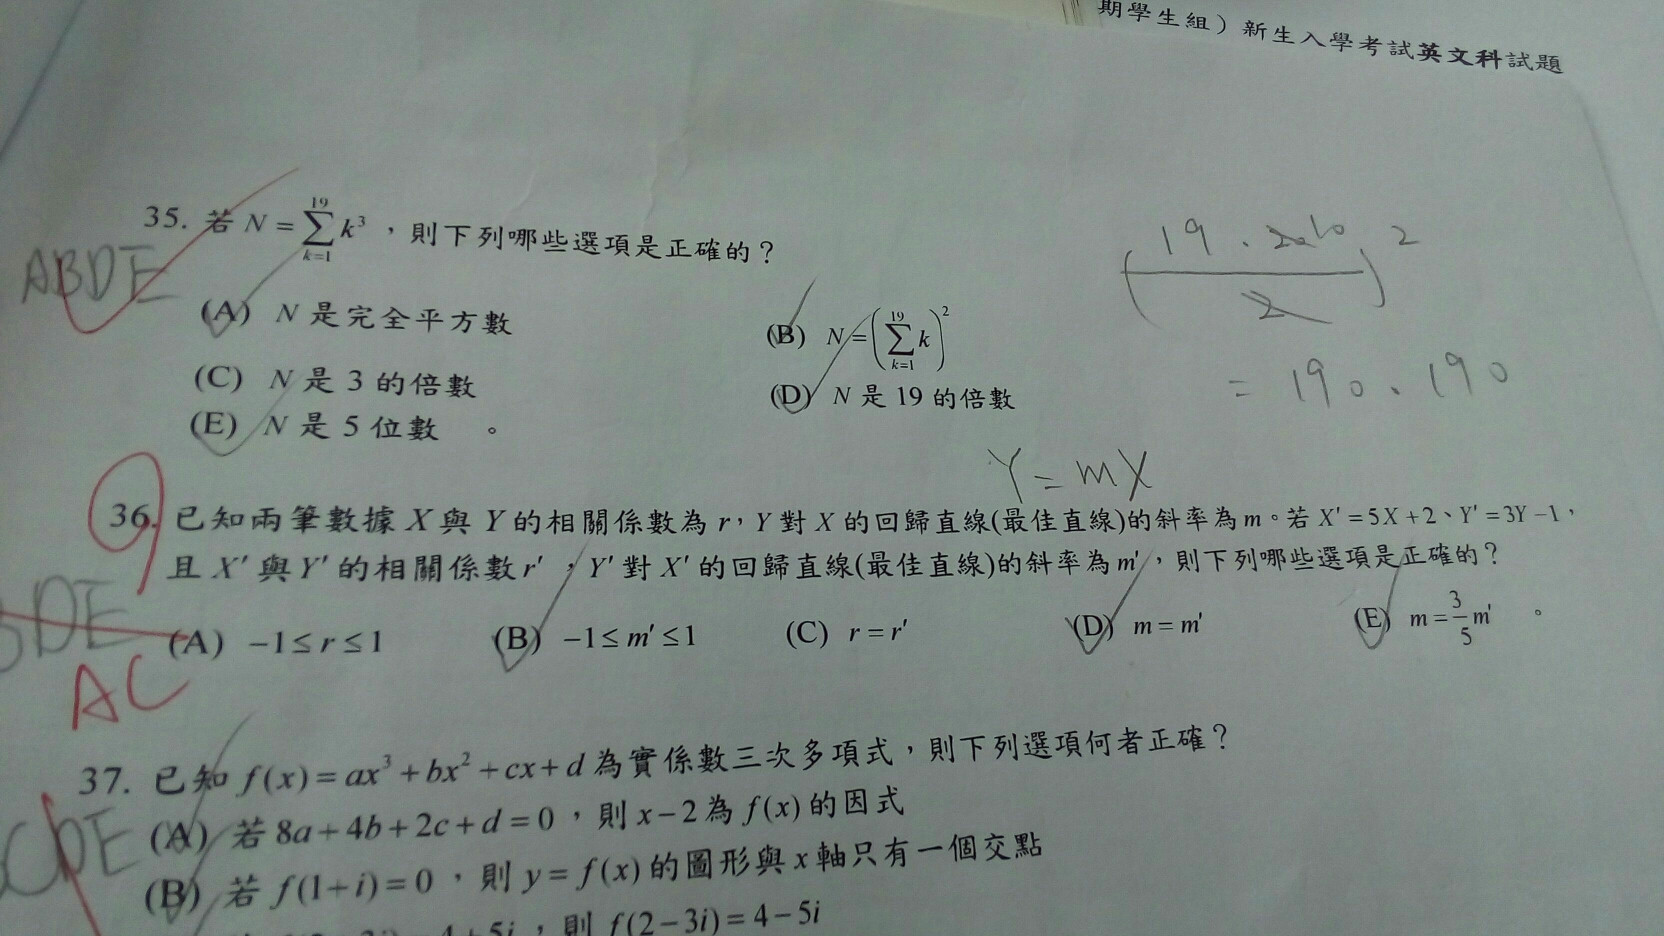 期學生組）新生入學考試英文科試題
35. 若 N = \sum_{k=1}^{19} k³ ，則下列哪些選項是正確的？
ABDE
(A) N 是完全平方數
(B) N = (\sum_{k=1}^{19} k)²
(C) N 是 3 的倍數
(D) N 是 19 的倍數
(E) N 是 5 位數 。
(19 · 20 10 / 2)²
= 190 · 190
Y = mX
36. 已知兩筆數據 X 與 Y 的相關係數為 r，Y 對 X 的回歸直線(最佳直線)的斜率為 m。若 X′ = 5X + 2、Y′ = 3Y − 1，
且 X′ 與 Y′ 的相關係數 r′ ，Y′ 對 X′ 的回歸直線(最佳直線)的斜率為 m′，則下列哪些選項是正確的？
BDE
(A) −1 ≤ r ≤ 1 (B) −1 ≤ m′ ≤ 1 (C) r = r′ (D) m = m′ (E) m = 3/5 m′ 。
AC
37. 已知 f(x) = ax³ + bx² + cx + d 為實係數三次多項式，則下列選項何者正確？
CDE
(A) 若 8a + 4b + 2c + d = 0 ，則 x − 2 為 f(x) 的因式
(B) 若 f(1 + i) = 0 ，則 y = f(x) 的圖形與 x 軸只有一個交點
4 + 5i ，則 f(2 − 3i) = 4 − 5i